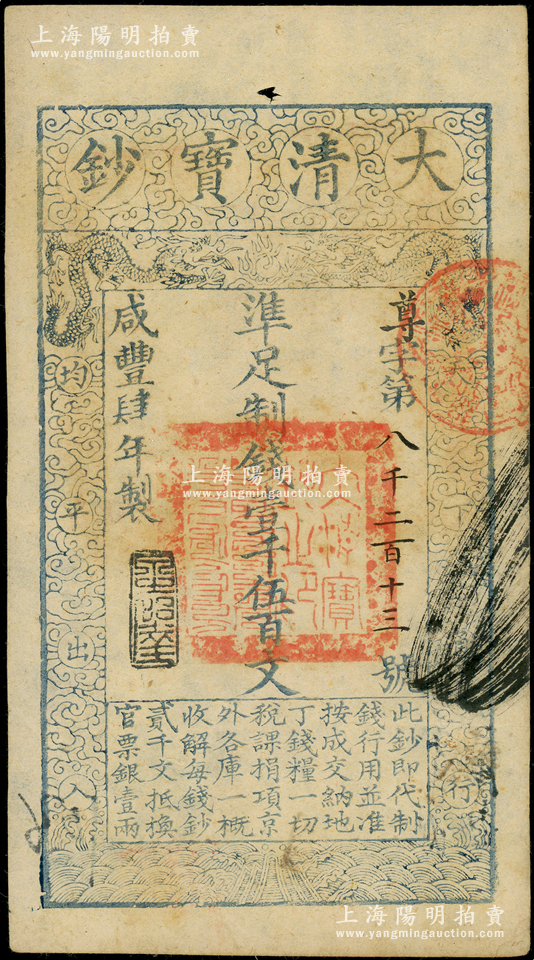 上海陽明拍賣
www.yangmingauction.com
大清寶鈔
尊字第八千二百十三號
準足制錢壹千伍百文
咸豐肆年製
均平出入
下
行
此鈔即代制
錢行用並准
按成交納地
丁錢糧一切
稅課捐項京
外各庫一概
收解每錢鈔
貳千文抵換
官票銀壹兩
上海陽明拍賣
www.yangmingauction.com
上海陽明拍賣
www.yangmingauction.com